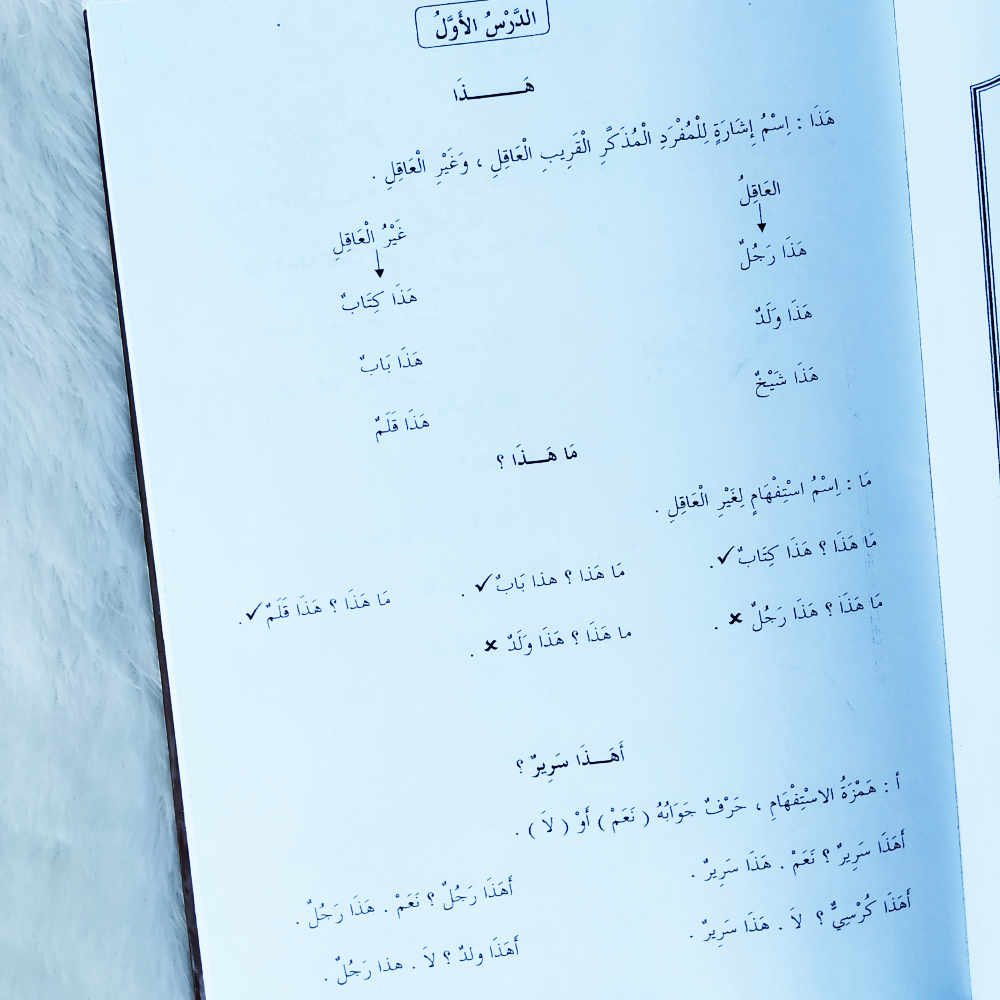 الدَّرْسُ الأَوَّلُ
هَـــــــذَا
هَذَا : اِسْمُ إِشَارَةٍ لِلْمُفْرَدِ الْمُذَكَّرِ الْقَرِيبِ الْعَاقِلِ ، وَغَيْرِ الْعَاقِلِ .
العَاقِلُ غَيْرُ الْعَاقِلِ
هَذَا رَجُلٌ هَذَا كِتَابٌ
هَذَا وَلَدٌ هَذَا بَابٌ
هَذَا شَيْخٌ هَذَا قَلَمٌ
مَا هَـــذَا ؟
مَا : اِسْمُ اسْتِفْهَامٍ لِغَيْرِ الْعَاقِلِ .
مَا هَذَا ؟ هَذَا كِتَابٌ ✓. مَا هَذا ؟ هذا بَابٌ ✓ . مَا هَذَا ؟ هَذَا قَلَمٌ ✓.
مَا هَذَا ؟ هَذَا رَجُلٌ ✗ . ما هَذَا ؟ هَذَا وَلَدٌ ✗ .
أَهَـــذَا سَرِيرٌ ؟
أ : هَمْزَةُ الاسْتِفْهَامِ ، حَرْفٌ جَوَابُهُ ( نَعَمْ ) أَوْ ( لاَ ) .
أَهَذَا سَرِيرٌ ؟ نَعَمْ . هَذَا سَرِيرٌ . أَهَذَا رَجُلٌ ؟ نَعَمْ . هَذَا رَجُلٌ .
أَهَذَا كُرْسِيٌّ ؟ لاَ . هَذَا سَرِيرٌ . أَهَذَا ولدٌ ؟ لاَ . هذا رَجُلٌ .